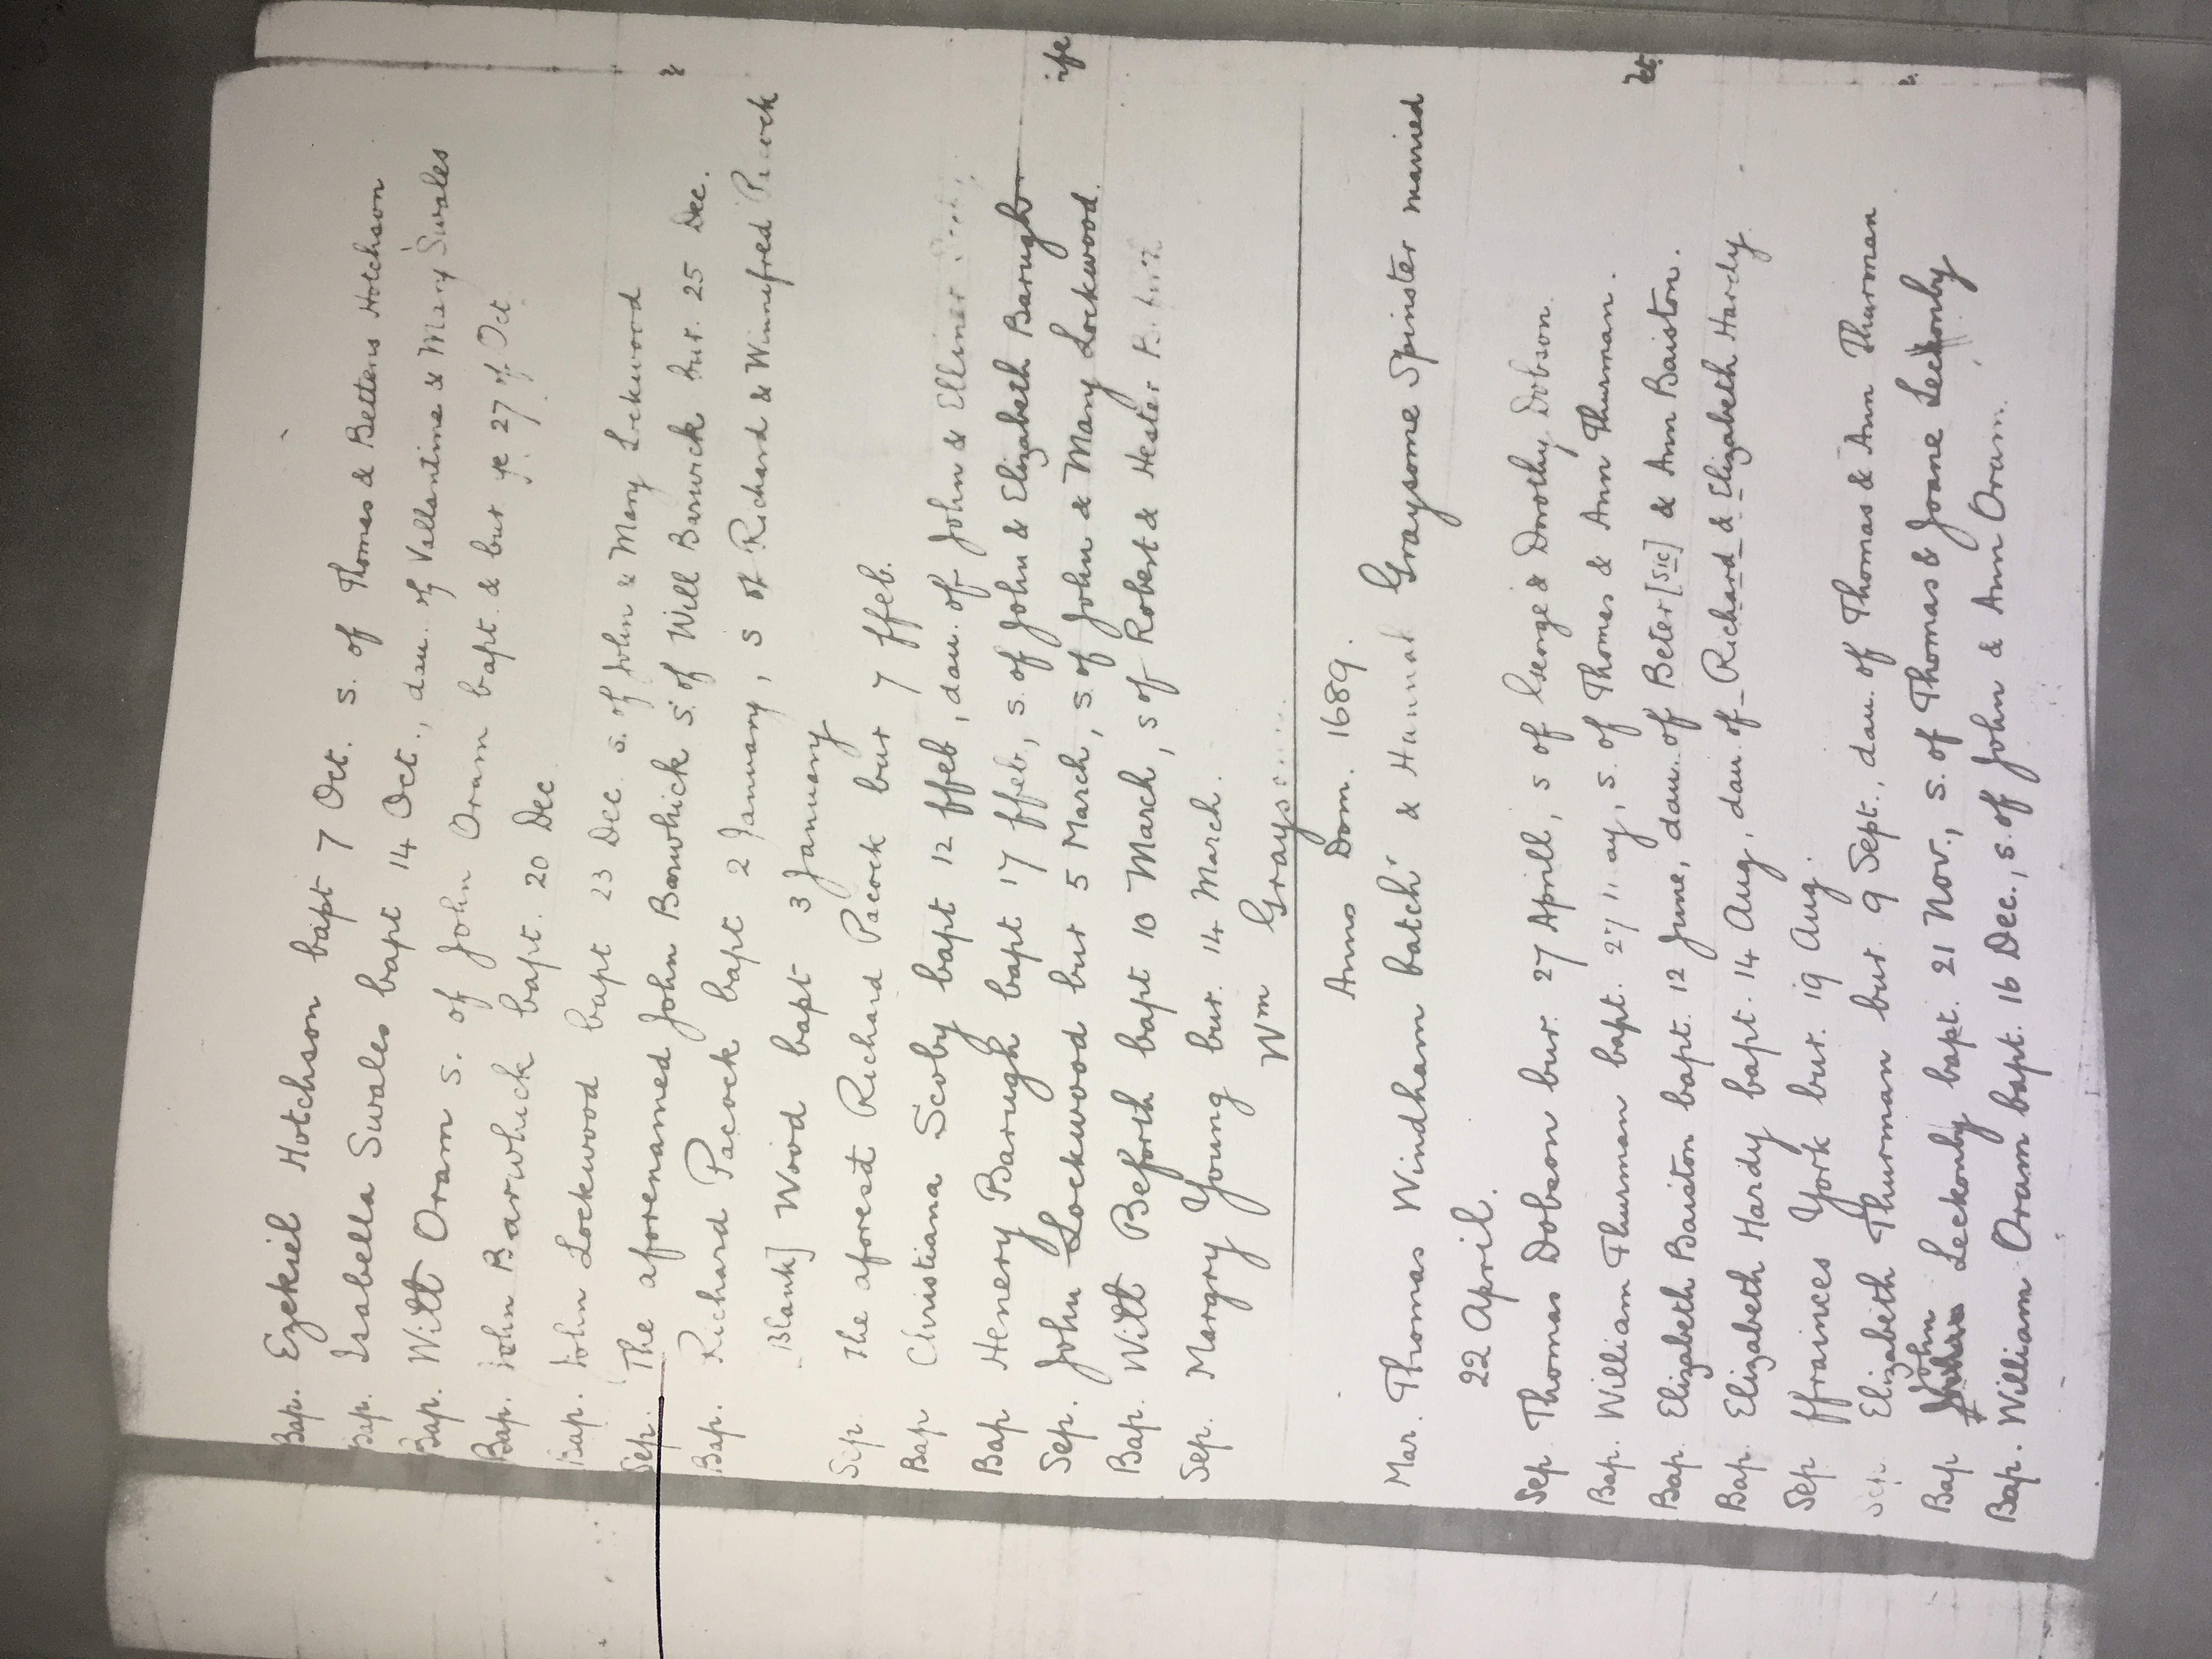 Bap. Ezekiel Hotchson bapt 7 Oct. s. of Thomas & Betteris Hotchson
Bap. Isabella Swales bapt 14 Oct., dau. of Vallantine & Mary Swales
Bap. Willt Oram s. of John Oram bapt. & bur ye 27 of Oct.
Bap. John Barwhick bapt. 20 Dec
Bap. John Lockwood bapt 23 Dec. s. of John & Mary Lockwood
Sep. The aforenamed John Barwhick s. of Will Barwick bur. 25 Dec.
Bap. Richard Pacock bapt 2 January, s of Richard & Winnifred Pacock
[Blank] Wood bapt 3 January
Sep. The aforest Richard Pacock bur 7 ffeb.
Bap Christiana Scoby bapt 12 ffeb, dau. of John & Elliner
Bap Henery Barugh bapt 17 ffeb., s. of John & Elizabeth Barugh
Sep. John Lockwood bur 5 March, s. of John & Mary Lockwood.
Bap. Willt Beforth bapt 10 March, s of Robert & Hester
Sep. Margry Young bur. 14 March.
Wm
Anno Dom. 1689.
Mar. Thomas Windham batchr & Hannah Graysome Spinster married
22 April.
Sep. Thomas Dobson bur. 27 Aprill, s of George & Dorothy Dobson.
Bap. William Thurman bapt. 27 ay, s. of Thomas & Ann Thurman.
Bap. Elizabeth Baiston bapt. 12 June, dau. of Beter [sic] & Ann Baiston.
Bap. Elizabeth Hardy bapt. 14 Aug, dau. of Richard & Elizabeth Hardy
Sep ffrainces York bur. 19 Aug.
Sep. Elizabeth Thurman bur. 9 Sept., dau. of Thomas & Ann Thurman
Bap John Leckonby bapt. 21 Nov., s. of Thomas & Joane Leckonby
Bap. William Oram bapt. 16 Dec., s. of John & Ann Oram.